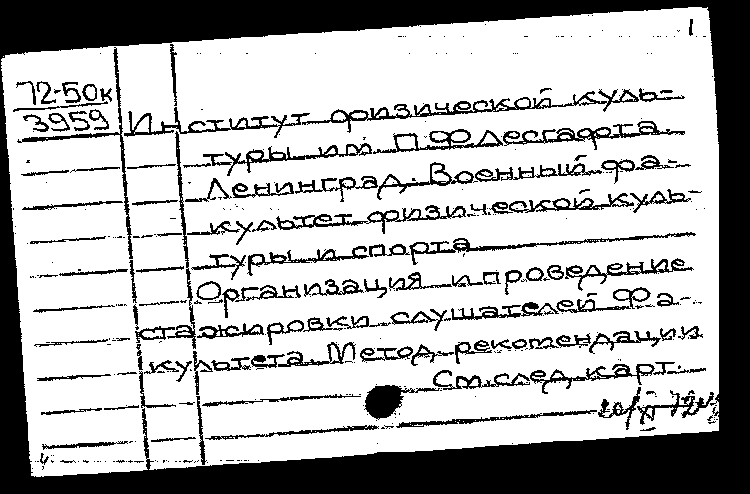 1
72-50к
3959
Институт физической куль-
туры им. П.Ф Лесгафта.
Ленинград. Военный фа-
культет физической куль-
туры и спорта
Организация и проведение
стажировки слушателей Фа-
культета. Метод. рекомендации
См. след. карт.
20/XI 72
4